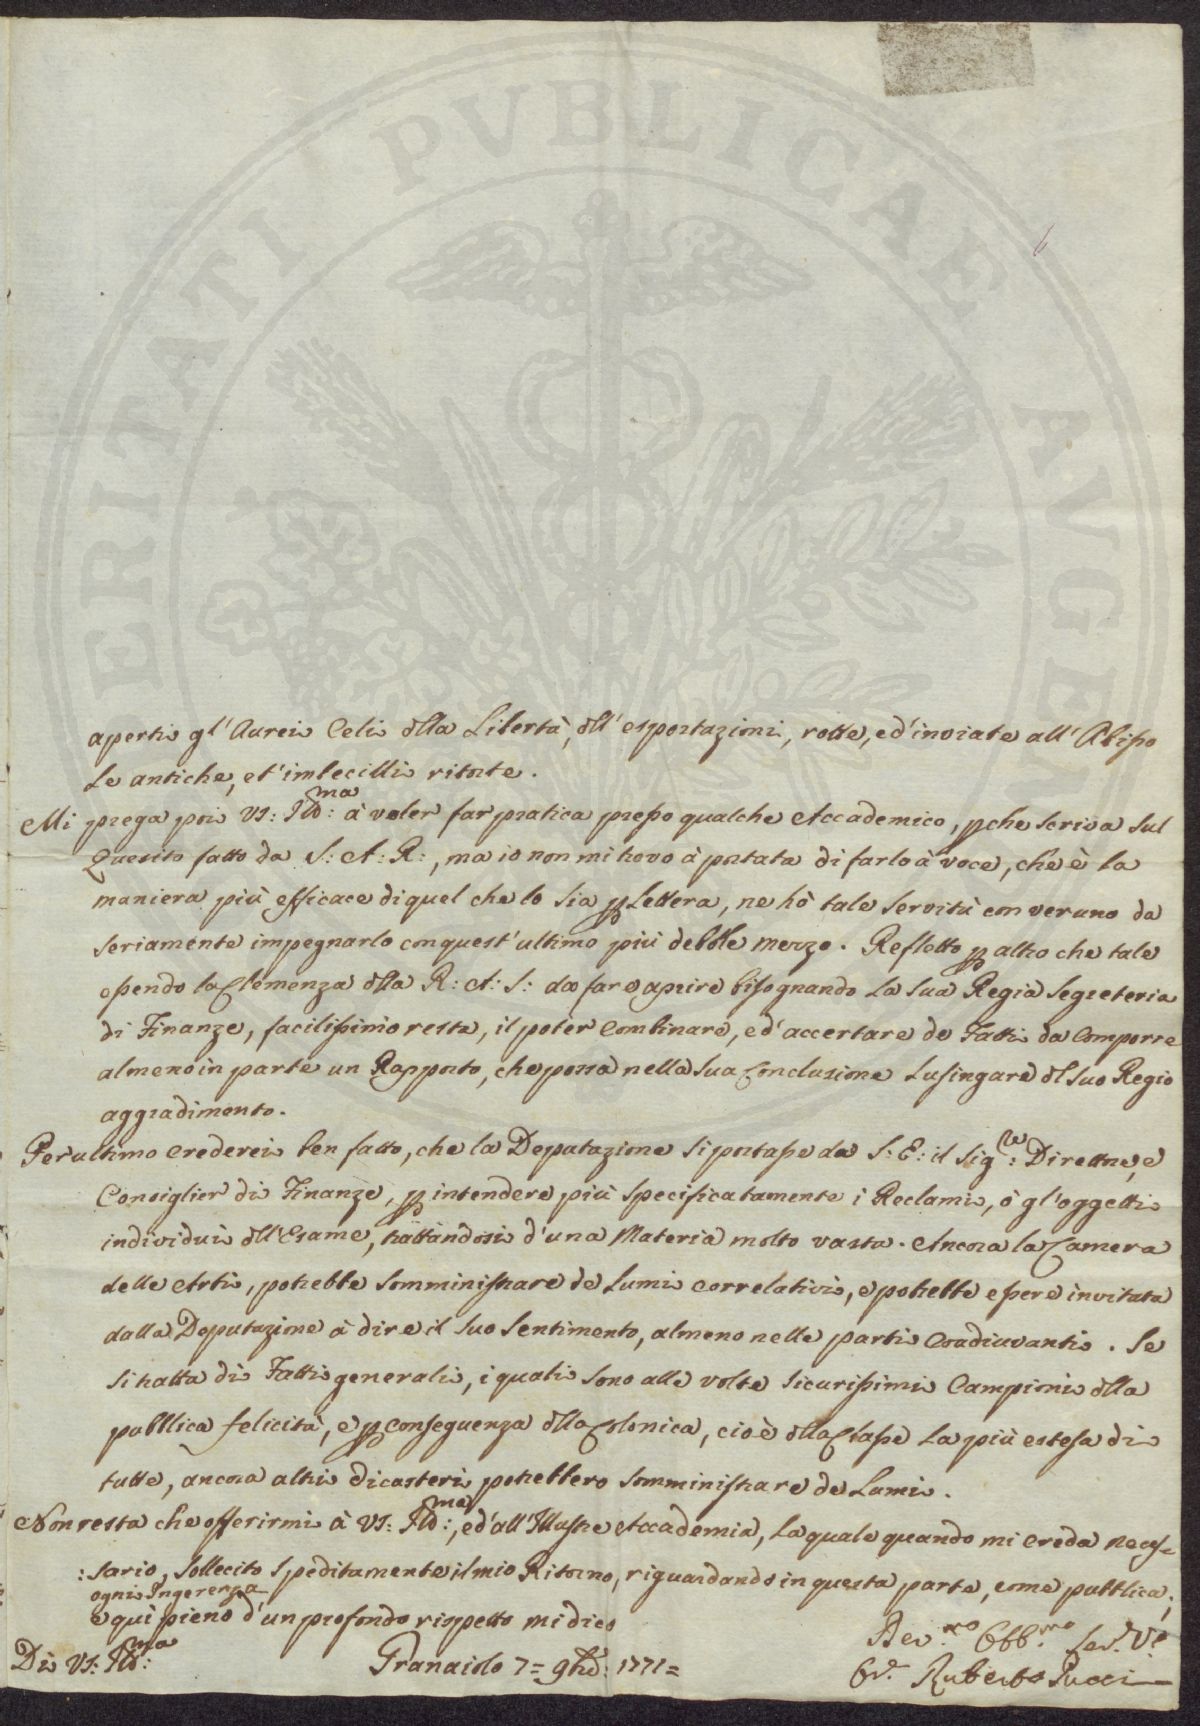 PROSPERITATI PVBLICAE AVGENDAE
6
aperti gl'Aurei Celi dlla Libertà, dll'esportazioni, rotte, ed'inviate all'Abisso
le antiche, et'imbecilli ritorte.
Mi prega poi VS: Ill:ma à voler far pratica presso qualche Accademico, pche scriva sul
Quesito fatto da S: A: R:, ma io non mi trovo à portata di farlo à voce, che è la
maniera più efficace di quel che lo sia p Lettera, ne hò tale servitù con veruno da
seriamente impegnarlo con quest'ultimo più debole mezzo. Refletto p altro che tale
essendo la Clemenza dlla R: A: S: da fare aprire bisognando la sua Regia Segreteria
di Finanze, facilissimo resta, il poter combinare, ed'accertare de Fatti da comporre
almeno in parte un Rapporto, che possa nella sua Conclusione lusingare dl suo Regio
aggradimento.
Per ultimo crederei ben fatto, che la Deputazione si portasse da S: E: il Sig:re Direttore, e
Consiglier di Finanze, p intendere più specificatamente i Reclami, ò gl'oggetti
individui dll'Esame, trattandosi d'una Materia molto vasta. Ancora la Camera
delle Arti, potrebbe somministrare de lumi correlativi, e potrebbe essere invitata
dalla Deputazione à dire il suo sentimento, almeno nelle parti Coadiuvanti. Se
si tratta di Fatti generali, i quali sono alle volte sicurissimi Campioni dlla
pubblica felicità, e p conseguenza dlla Colonica, cioè dlla Classe la più estesa di
tutte, ancora altri Dicasteri potrebbero somministrare de Lumi.
Non resta che offerirmi à VS: Ill:ma, ed'all'Illustre Accademia, la quale quando mi creda neces=
:sario, sollecito speditamente il mio Ritorno, riguardando in questa parte, come pubblica,
ogni Ingerenza
e quì pieno d'un profondo rispetto mi dico
Di VS: Ill:ma
Granaiolo 7= 9bre: 1771=
Dev.mo Obb.mo Ser.e V.o
Cav.e Ruberto Pucci